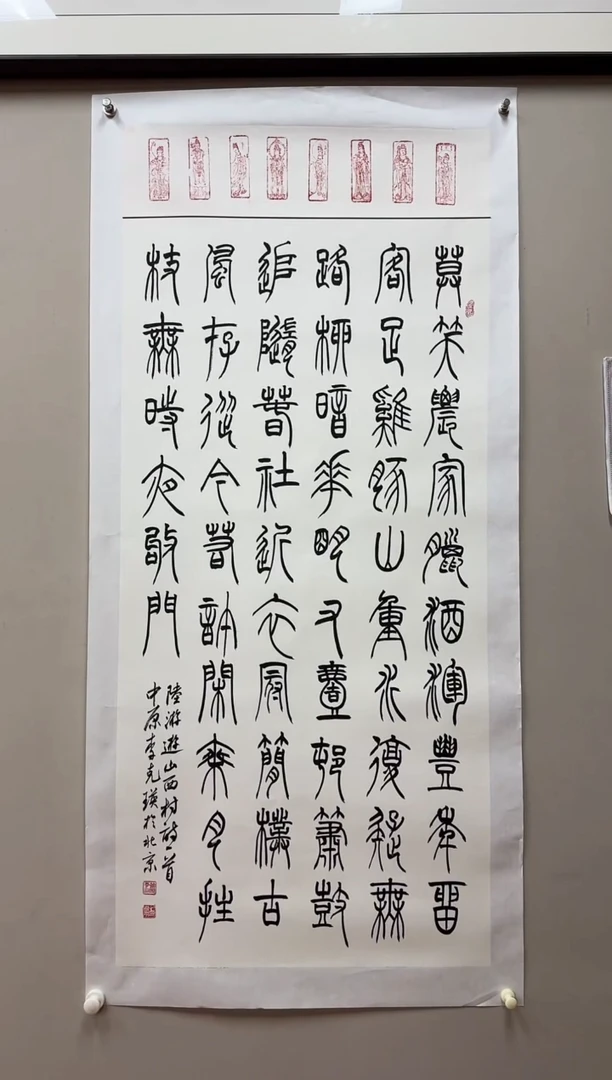 莫笑農家臘酒渾豐年留
客足雞豚山重水復疑無
路柳暗花明又壹邨簫鼓
追隨春社近衣冠簡樸古
風存從今若許閑乘月拄
杖無時夜敲門
陸游遊山西村詩一首
中原李克瑛於北京